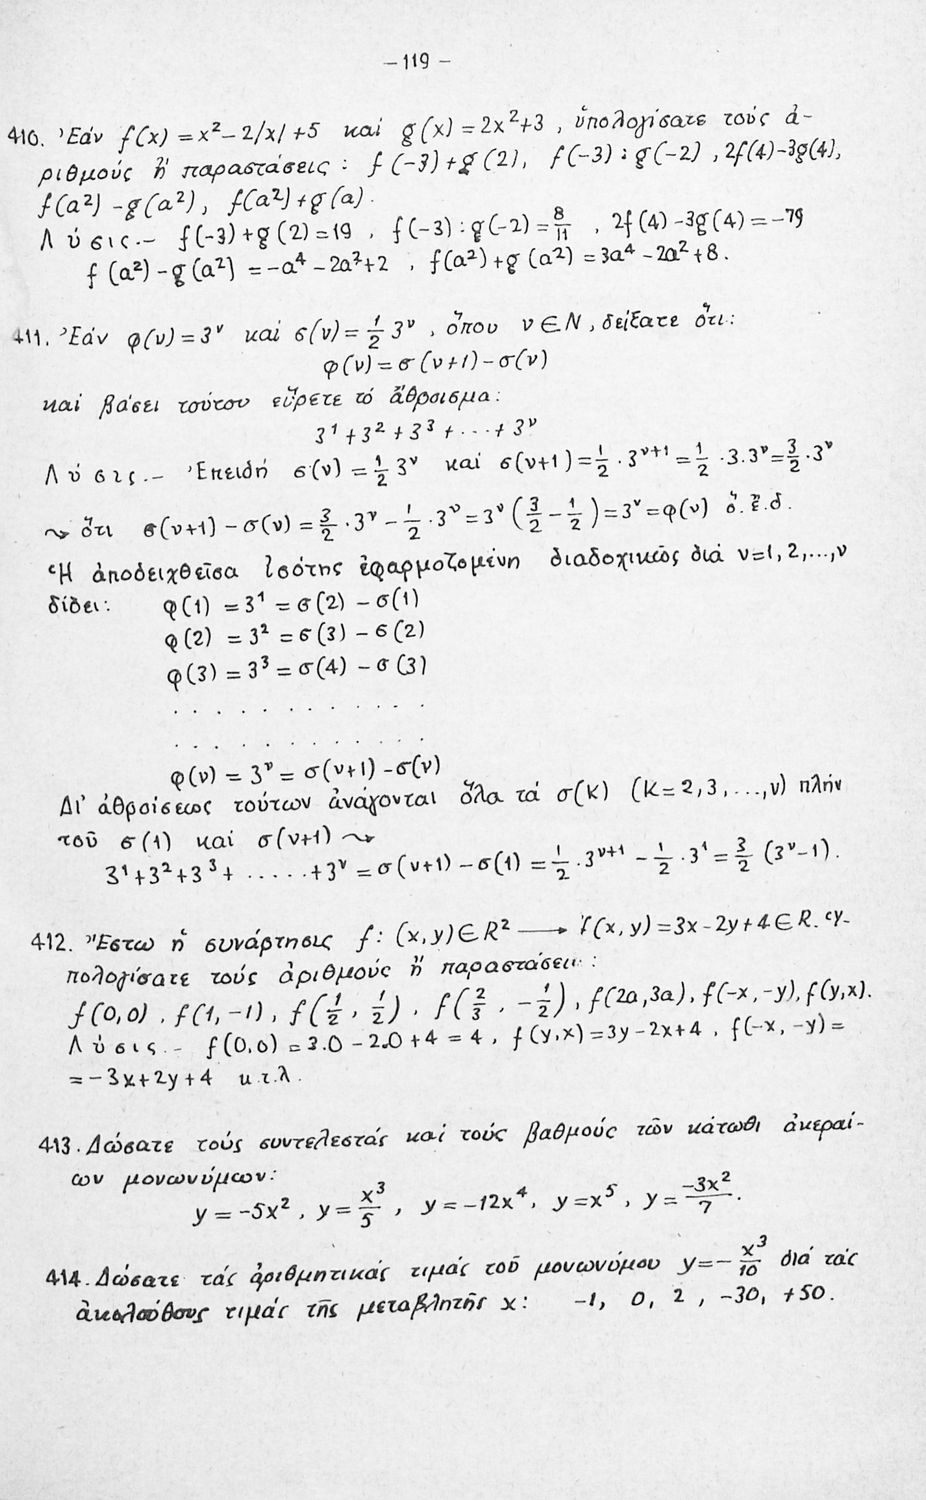 – 119 –
410. Ἐάν f(x) = x² – 2/x/ + 5 καί g(x) = 2x² + 3 , ὑπολογίσατε τούς ἀ-
ριθμούς ἤ παραστάσεις : f(-3) + g(2), f(-3) : g(-2) , 2f(4) – 3g(4),
f(a²) – g(a²), f(a²) + g(a).
Λύσις.– f(-3) + g(2) = 19 , f(-3) : g(-2) = 8/11 , 2f(4) – 3g(4) = –79
f(a²) – g(a²) = –a⁴ – 2a² + 2 , f(a²) + g(a²) = 3a⁴ – 2a² + 8.
411. Ἐάν φ(ν) = 3^ν καί σ(ν) = 1/2 3^ν , ὅπου ν ∈ N , δείξατε ὅτι:
φ(ν) = σ(ν+1) – σ(ν)
καί βάσει τούτου εὕρετε τό ἄθροισμα:
3¹ + 3² + 3³ + ... + 3^ν
Λύσις.– Ἐπειδή σ(ν) = 1/2 3^ν καί σ(ν+1) = 1/2 · 3^(ν+1) = 1/2 · 3 · 3^ν = 3/2 · 3^ν
⤳ ὅτι σ(ν+1) – σ(ν) = 3/2 · 3^ν – 1/2 · 3^ν = 3^ν (3/2 – 1/2) = 3^ν = φ(ν) ὅ.ἔ.δ.
Ἡ ἀποδειχθεῖσα ἰσότης ἐφαρμοζομένη διαδοχικῶς διά ν=1,2,...,ν
δίδει: φ(1) = 3¹ = σ(2) – σ(1)
φ(2) = 3² = σ(3) – σ(2)
φ(3) = 3³ = σ(4) – σ(3)
. . . . . . . . . . . .
. . . . . . . . . . . .
φ(ν) = 3^ν = σ(ν+1) – σ(ν)
Δι' ἀθροίσεως τούτων ἀνάγονται ὅλα τά σ(κ) (κ=2,3,...,ν) πλήν
τοῦ σ(1) καί σ(ν+1) ⤳
3¹ + 3² + 3³ + ...... + 3^ν = σ(ν+1) – σ(1) = 1/2 · 3^(ν+1) – 1/2 · 3¹ = 3/2 (3^ν – 1).
412. Ἔστω ἡ συνάρτησις f : (x,y) ∈ R² ⟶ f(x,y) = 3x – 2y + 4 ∈ R. Ὑ-
πολογίσατε τούς ἀριθμούς ἤ παραστάσεις :
f(0,0) , f(1,–1) , f(1/2 , 1/2) , f(2/3 , –1/2) , f(2a,3a) , f(-x,-y), f(y,x).
Λύσις.– f(0,0) = 3.0 – 2.0 + 4 = 4 , f(y,x) = 3y – 2x + 4 , f(-x,-y) =
= –3x + 2y + 4 κ.τ.λ.
413. Δώσατε τούς συντελεστάς καί τούς βαθμούς τῶν κάτωθι ἀκεραί-
ων μονωνύμων:
y = –5x² , y = x³/5 , y = –12x⁴ , y = x⁵ , y = –3x²/7 .
414. Δώσατε τάς ἀριθμητικάς τιμάς τοῦ μονωνύμου y = – x³/10 διά τάς
ἀκολούθους τιμάς τῆς μεταβλητῆς x : –1, 0, 2 , –30, +50.